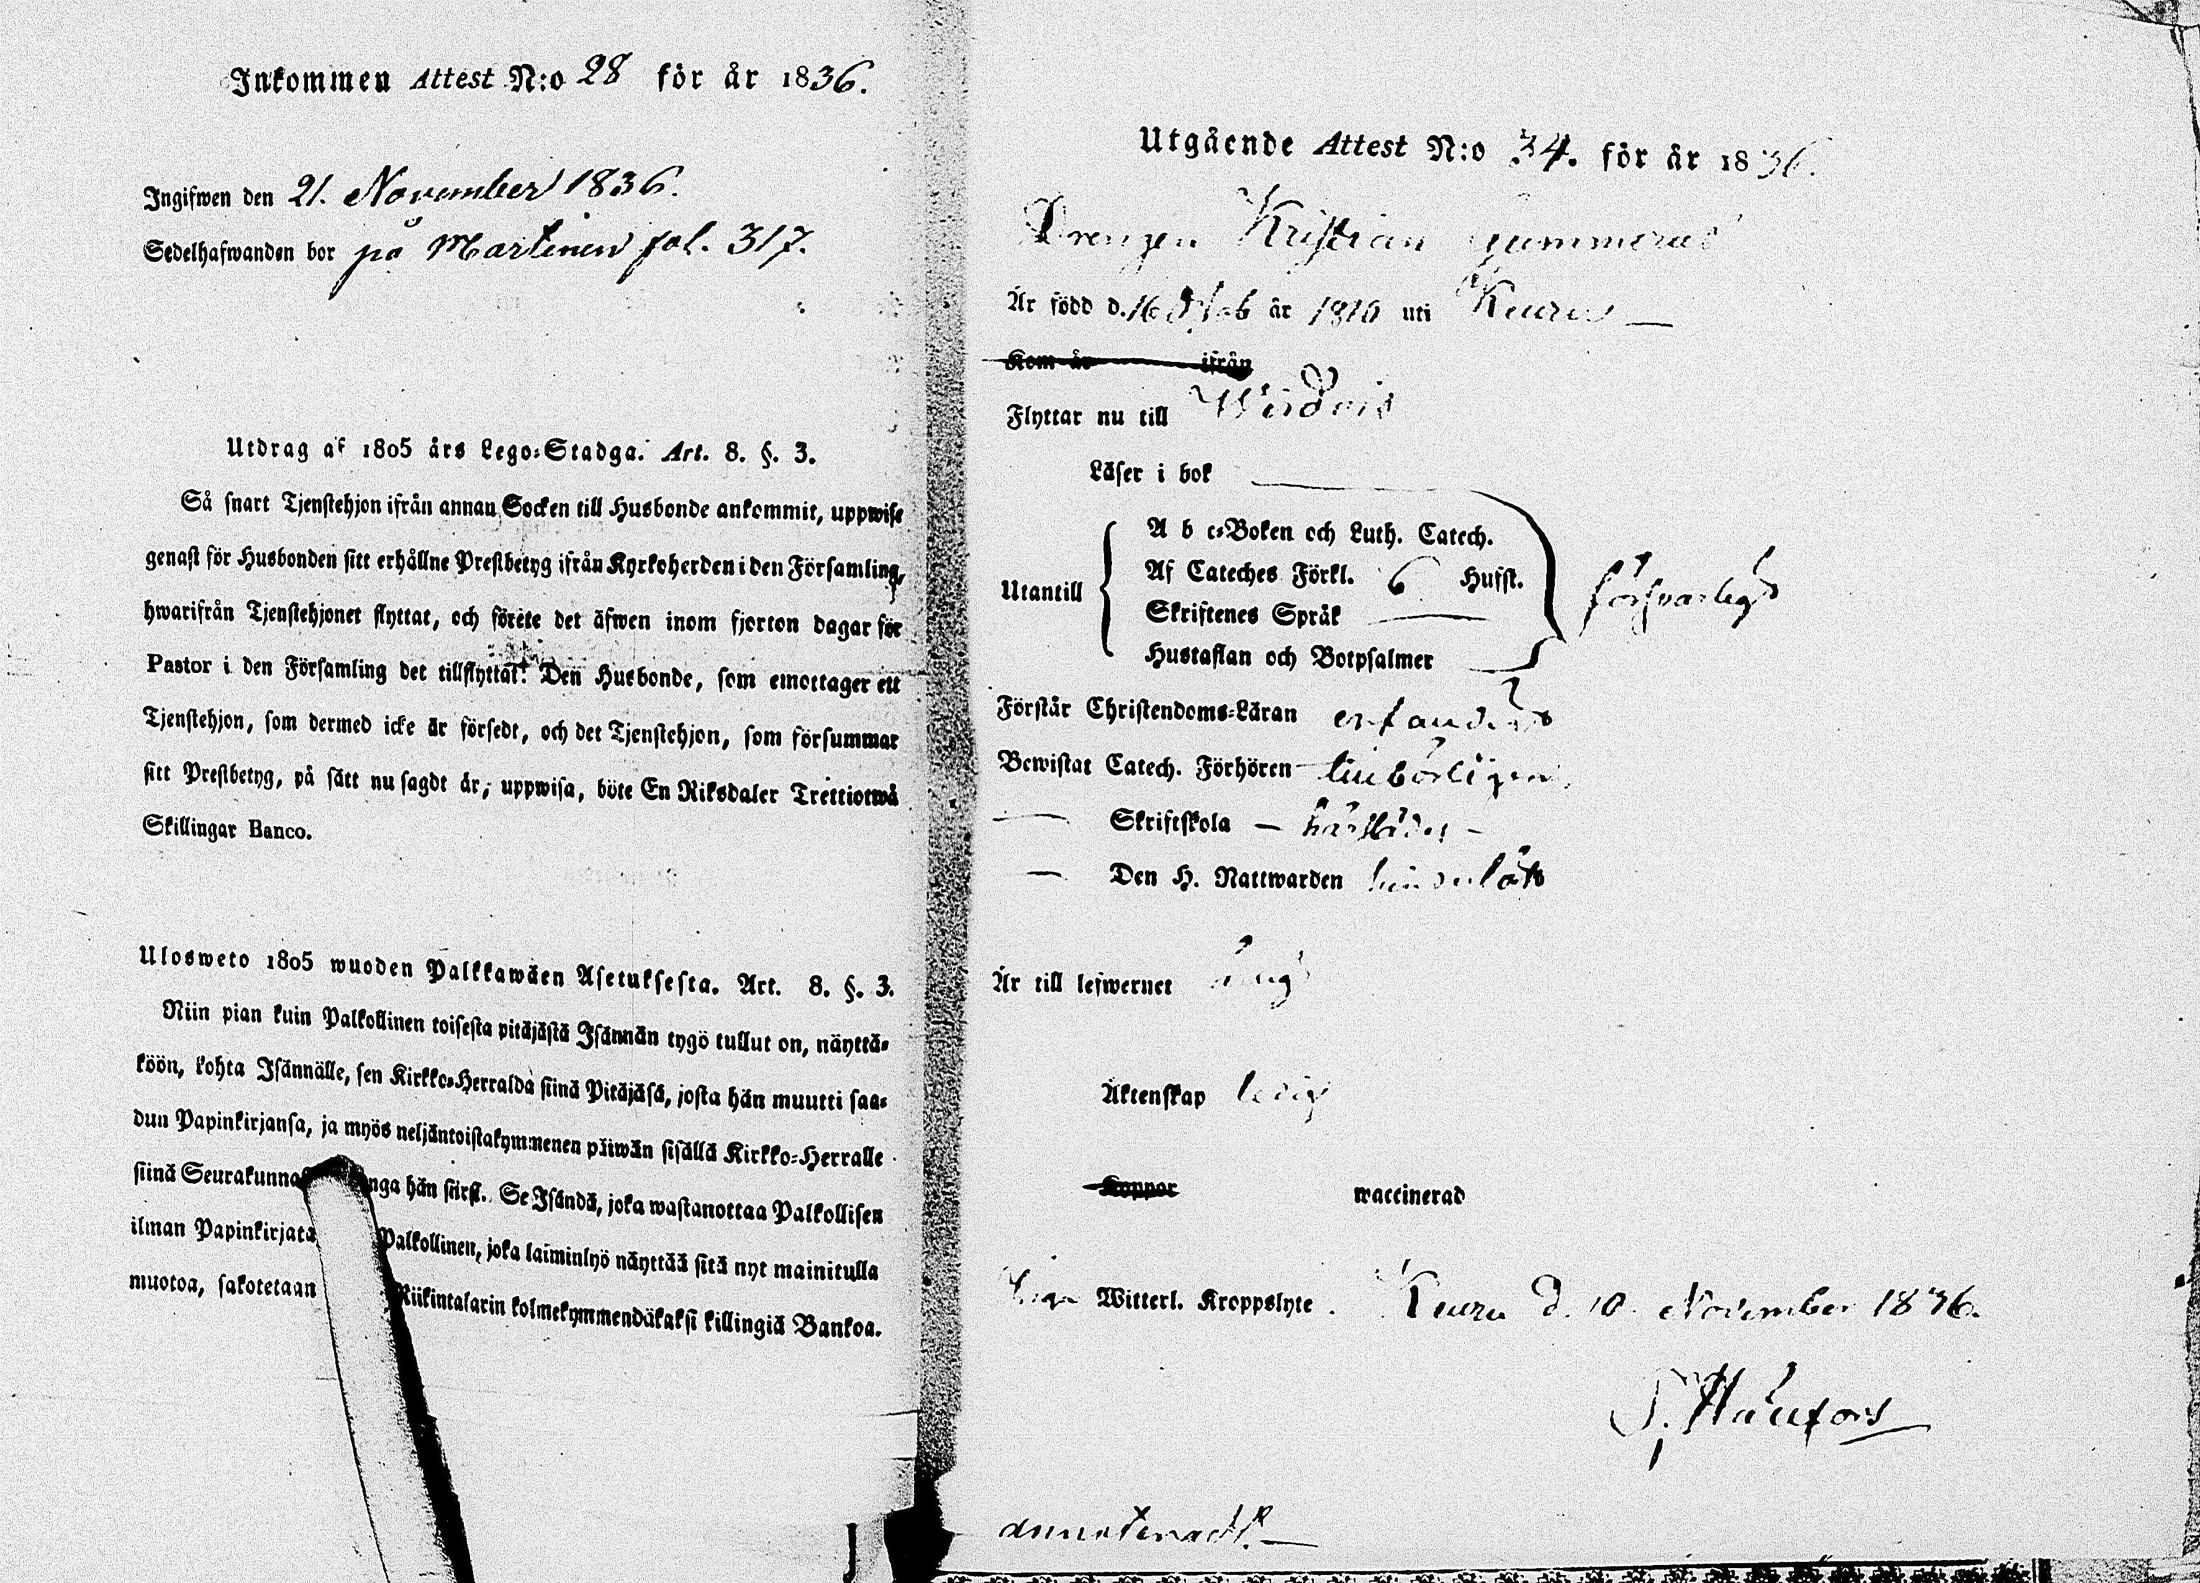 Inkommen Attest N:o 28 för år 1836.
Ingifwen den 21. November 1836.
Sedelhafwanden bor på Martinen fol. 317.
Utdrag af 1805 års Lego-Stadga. Art. 8. §. 3.
Så snart Tjenstehjon ifrån annan Socken till Husbonde ankommit, uppwise
genast för Husbonden sitt erhållne Prestbetyg ifrån Kyrkoherden i den Församling,
hwarifrån Tjenstehjonet flyttat, och förete det äfwen inom fjorton dagar för
Pastor i den Församling det tillflyttat. Den Husbonde, som emottager ett
Tjenstehjon, som dermed icke är försedt, och det Tjenstehjon, som försummar
sitt Prestbetyg, på sätt nu sagdt är, uppwisa, böte En Riksdaler Trettiotwå
Skillingar Banco.
Ulosweto 1805 wuoden Palkkawäen Asetuksesta. Art. 8. §. 3.
Niin pian kuin Palkollinen toisesta pitäjästä Isännän tygö tullut on, näyttä-
köön, kohta Isännälle, sen Kirkko-Herralda siinä Pitäjäsä, josta hän muutti saa-
dun Papinkirjansa, ja myös neljäntoistakymmenen päiwän sisällä Kirkko-Herralle
siinä hän siirsi. Se Isändä, joka wastanottaa Palkollisen
ilman Papinkirjata Palkollinen, joka laiminlyö näyttää sitä nyt mainitulla
muotoa, sakotetaan Riikintalarin kolmekymmendäkaksi killingiä Bankoa.
Utgående Attest N:o 34. för år 1836.
Drengen Kristian Gummerus
Är född d. 16 år 1816 uti Keuru
Kom år ifrån
Flyttar nu till Wirdois
Läser i bok
A b c-Boken och Luth. Catech.
Utantill Af Cateches Förkl. 6 Hufst. försvarligt
Skriftenes Språk
Hustaflan och Botpsalmer
Förstår Christendoms-Läran enfaldigt
Bewistat Catech. Förhören tillbörligen
Skriftskola
Den H. Nattwarden
Är till lefwernet
Äktenskap ledig
Koppor waccinerad
Inga Witterl. Kroppslyte. Keuru d. 10 November 1836.